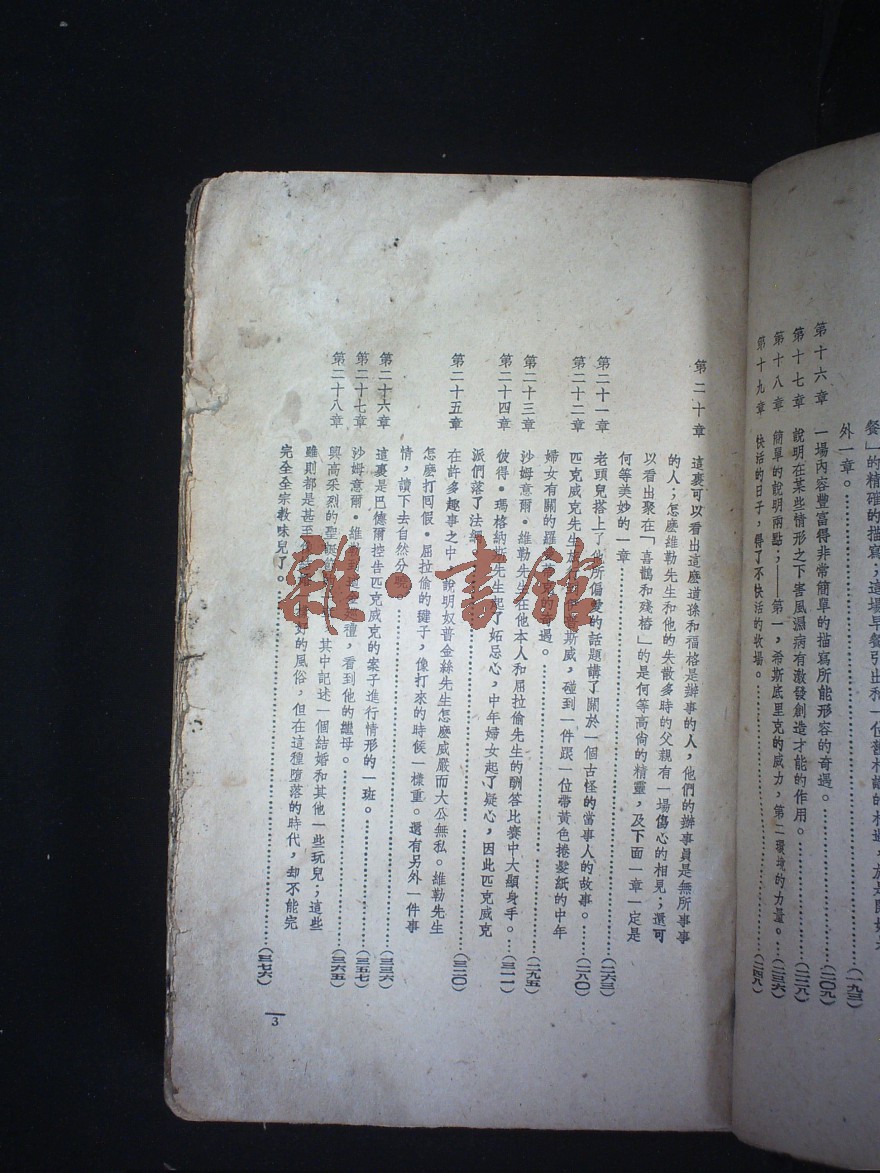 餐」的精確的描寫；這場早餐引出和一位舊相識的相逢，於是開始另
外一章。……(一九三)
第十六章 一場內容豐富得非常簡單的描寫所能形容的奇遇。……(二〇九)
第十七章 說明在某些情形之下害風濕病有激發創造才能的作用。……(二二八)
第十八章 簡單的說明兩點；——第一，希斯底里克的威力，第二環境的力量。……(二三六)
第十九章 快活的日子，得了不快活的收場。……(二四九)
第二十章 這裏可以看出這麽道孫和福格是辦事的人，他們的辦事員是無所事事
的人；怎麽維勒先生和他的失散多時的父親有一場傷心的相見；還可
以看出聚在「喜鵲和殘樁」的是何等高尙的精靈，及下面一章一定是
何等美妙的一章……(二六三)
第二十一章 老頭兒搭上了他所偏愛的話題講了關於一個古怪的當事人的故事。……(二八〇)
第二十二章 匹克威克先生 斯威，碰到一件跟一位帶黃色捲髮紙的中年
婦女有關的羅 遇。……(二九五)
第二十三章 沙姆意爾·維勒先 在他本人和屈拉偷先生的酬答比賽中大顯身手。……(三一一)
第二十四章 彼得·瑪格納斯先生起了妬忌心，中年婦女起了疑心，因此匹克威克
派們落了法網……(三二〇)
第二十五章 在許多趣事之中 說明奴普金絲先生怎麽威嚴而大公無私。維勒先生
怎麽打囘假·屈拉偷的毽子，像打來的時候一樣重。還有另外一件事
情，讀下去自然分曉……(三三六)
第二十六章 這裏是巴德爾控告匹克威克的案子進行情形的一斑。……(三五七)
第二十七章 沙姆意爾·維勒到 種，看到他的繼母。……(三六五)
第二十八章 興高采烈的聖誕 其中記述一個結婚和其他一些玩兒；這些
雖則都是甚至 好的風俗，但在這種墮落的時代，却不能完
完全全宗教味兒了。……(三七六)
3
雜·書館